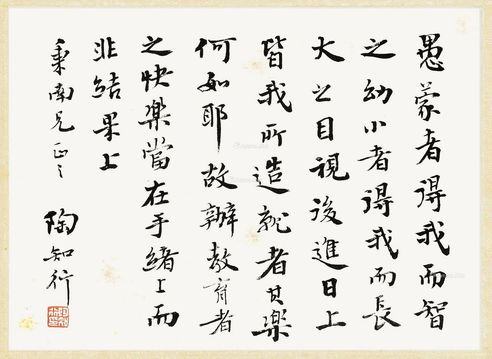 愚蒙者得我而智
之幼小者得我而長
大之目視後進日上
皆我所造就者其樂
何如耶故辦教育者
之快樂當在手緒上而
非結果上
秉南兄正之 陶知行